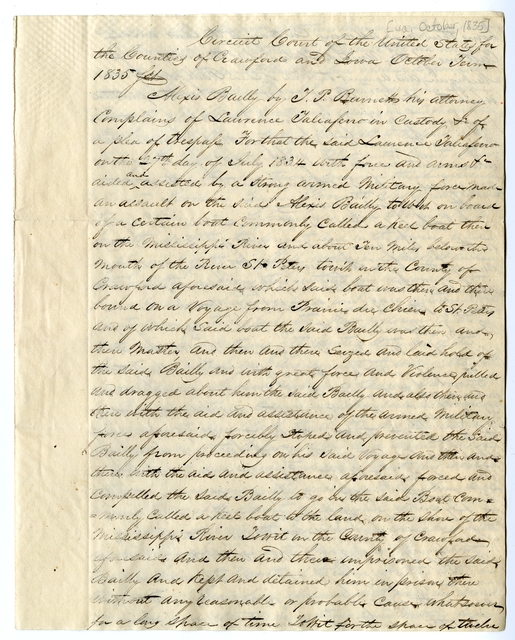 [ca. October, 1835]
Circuit Court of the United States for
the Counties of Crawford and Iowa October Term
1835
Alexis Bailly by T. P. Burnett his attorney
Complains of Lawrence Taliaferro in Custody &c of
a plea of Trespass For that the said Lawrence Taliaferro
on the day of July 1834 with force and arms &c
and
aided assisted by a strong armed Military force made
an assault on the said Alexis Bailly towit on board
of a certain boat Commonly Called a Keel boat then
on the Mississippi River and about Ten Miles below the
Mouth of the River St Peters towit in the County of
Crawford aforesaid which said boat was then and there
bound on a Voyage from Prairie du Chien to St Peters
and of which said boat the said Bailly was then and
there Master and then and there Seized and laid hold of
the said Bailly and with great force and Violence pulled
and dragged about him the said Bailly and also then and
there with the aid and assistance of the armed Military
force aforesaid forcibly stoped and prevented the said
Bailly from proceeding on his said Voyage and then and
there with the aid and assistance aforesaid forced and
Compelled the said Bailly to go in the said Boat Com=
=monly Called a Keel boat to the land, on the shore of the
Mississippi River Towit in the County of Crawford
aforesaid And then and there imprisoned the said
Bailly and Kept and detained him in prison there
without any reasonable or probable Cause whatsoever
for a long space of time Towit for the space of twelve